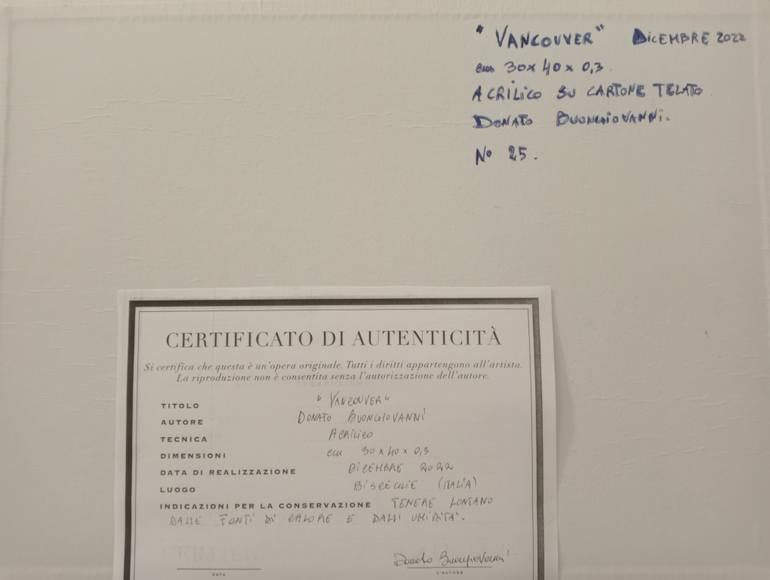 "VANCOUVER" DICEMBRE 2022
cm 30x40x0,3
ACRILICO SU CARTONE TELATO
DONATO BUONGIOVANNI.
N° 25.
CERTIFICATO DI AUTENTICITÀ
Si certifica che questa è un'opera originale. Tutti i diritti appartengono all'artista.
La riproduzione non è consentita senza l'autorizzazione dell'autore.
TITOLO "VANCOUVER"
AUTORE DONATO BUONGIOVANNI
TECNICA ACRILICO
DIMENSIONI cm 30x40x0,3
DATA DI REALIZZAZIONE DICEMBRE 2022
LUOGO BISCEGLIE (ITALIA)
INDICAZIONI PER LA CONSERVAZIONE TENERE LONTANO
DALLE FONTI DI CALORE E DALL'UMIDITA'.
Donato Buongiovanni
DATA L'AUTORE